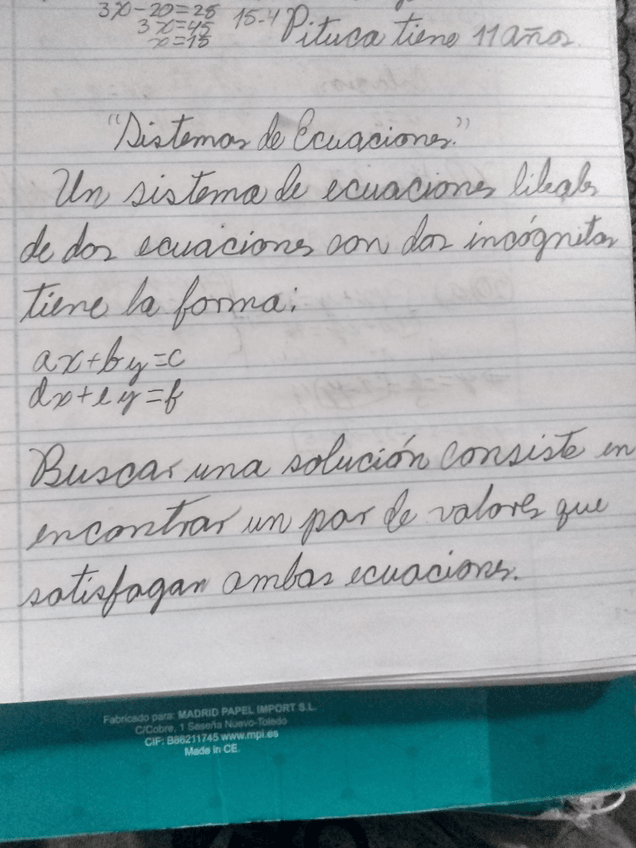 3x-20=25
3x=45
x=15
15-4
Pituca tiene 11 años.
"Sistemas de Ecuaciones."
Un sistema de ecuaciones lileales
de dos ecuaciones con dos incógnitas
tiene la forma:
ax+by=c
dx+ey=f
Buscar una solución consiste en
encontrar un par de valores que
satisfagan ambas ecuaciones.
Fabricado para: MADRID PAPEL IMPORT S.L.
C/Cobre, 1 Seseña Nuevo-Toledo
CIF: B86211745 www.mpi.es
Made in CE.